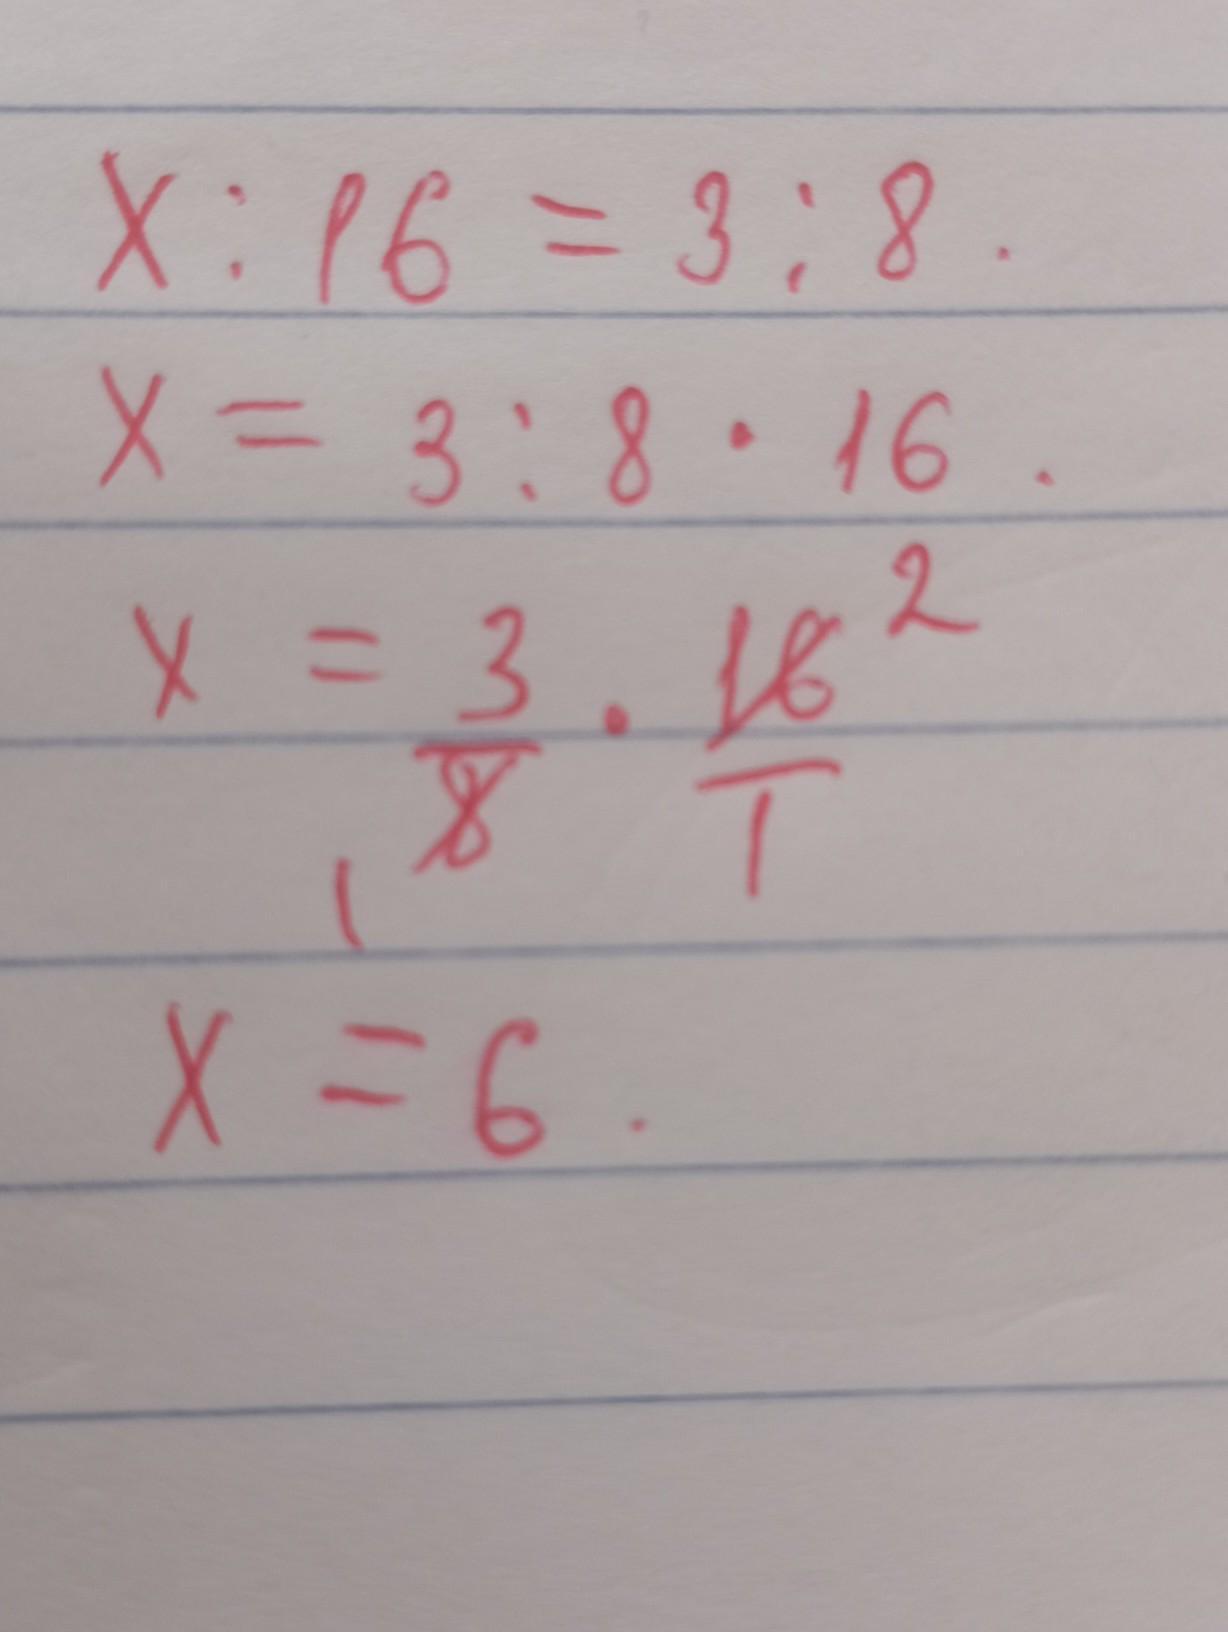 X : 16 = 3 : 8 .
X = 3 : 8 · 16 .
x = 3/8 · 16/1 2
1
X = 6 .